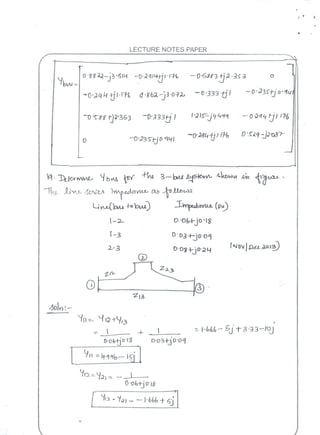 LECTURE NOTES PAPER
Ybus =
0.8822-j3.514 -0.294+j1.176 -0.5883+j2.353 0
-0.294+j1.176 0.862-j3.072 -0.333+j1 -0.235+j0.941
-0.588+j2.353 -0.333+j1 1.215-j4.499 -0.294+j1.176
0 -0.235+j0.941 -0.294+j1.176 0.529-j2.087
19. Determine Ybus for the 3-bus system shown in figure.
The line series impedance as follows
Line (bus to bus) Impedance (pu)
1-2 0.06+j0.18
1-3 0.03+j0.09
2-3 0.08+j0.24 (Nov/Dec 2013)
②
Z12 Z23
① ③
Z13
Soln:-
Y11 = Y12 + Y13
= 1 + 1 = 1.666 - 5j + 3.33 - 10j
0.06+j0.18 0.03+j0.09
Y11 = 4.996 - 15j
Y12 = Y21 = - 1
0.06+j0.18
Y12 = Y21 = -1.666 + 5j